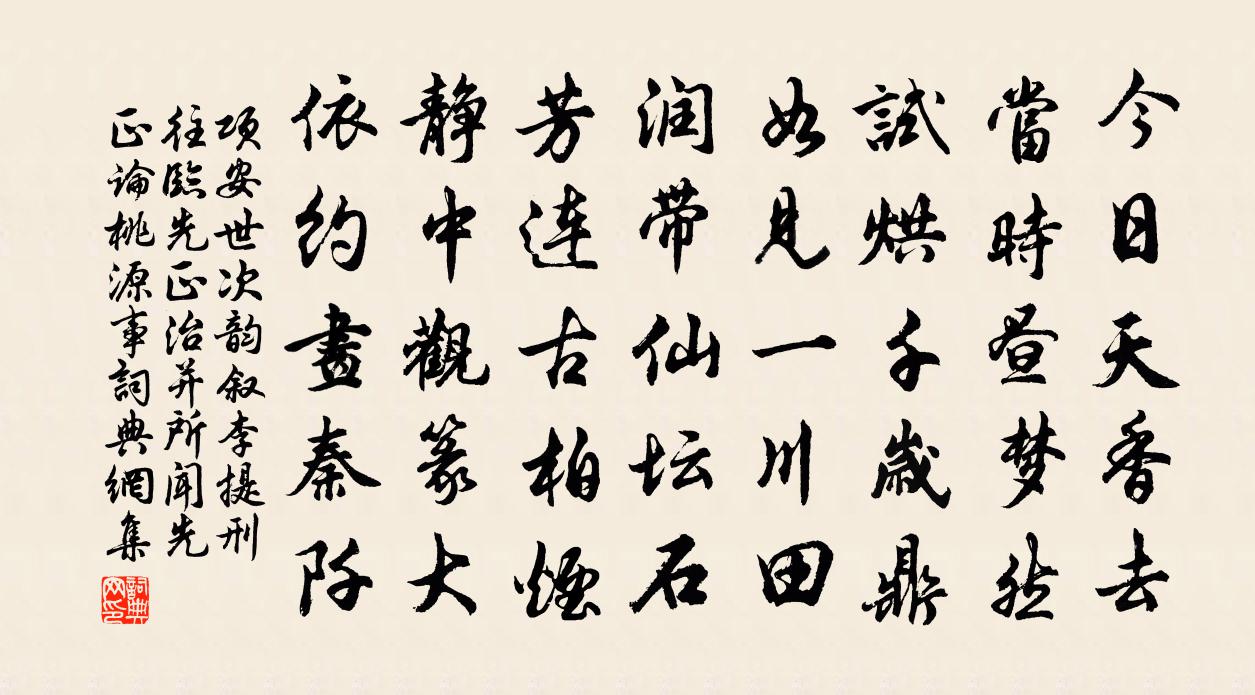 今日天香去
當時昼梦然
試烘千歳鼎
如见一川田
润带仙坛石
芳连古柏煙
静中觀篆大
依约畫秦阡
项安世次韵叙李提刑
往臨先正治并所闻先
正论桃源事詞典網集
詞典网印